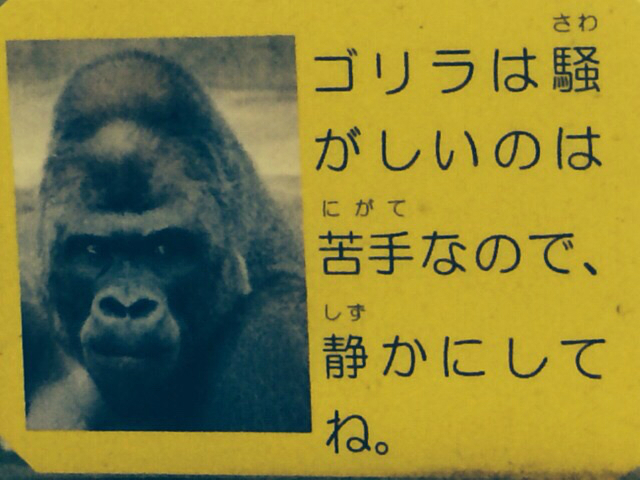 さわ
ゴリラは騒
がしいのは
にがて
苦手なので、
しず
静かにして
ね。